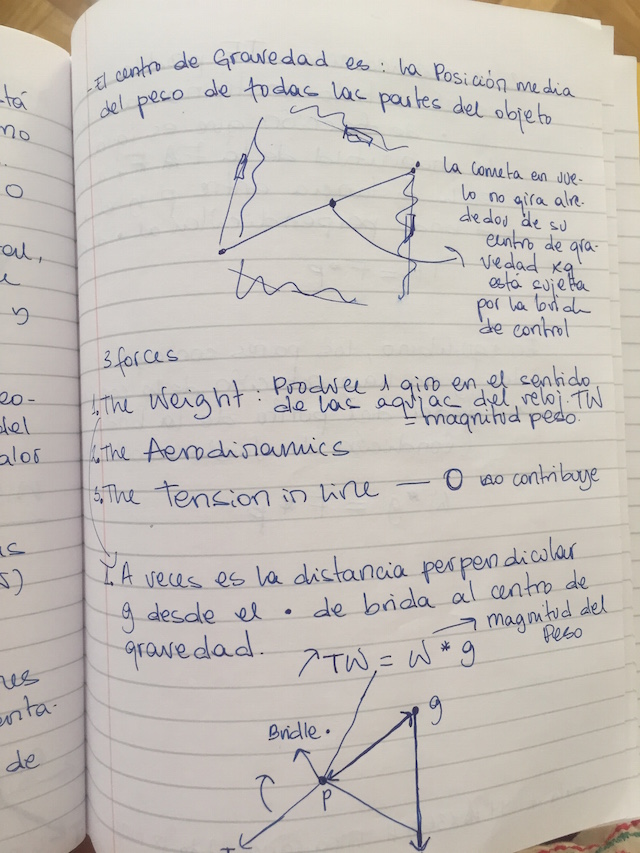 tá
no
.
O
ral,
e
y
eo-
del
alor
as
5)
nes
enta.
de
- El centro de Gravedad es: La Posición media
del peso de todas las partes del objeto
La cometa en vue-
lo no gira alre
dedor de su
centro de gra-
vedad xq
está sujetta
por la brida
de control
3 forces
1. The Weight: Produce 1 giro en el sentido
de las agujas del reloj. TW
= magnitud peso.
2. The Aerodinamics
3. The tension in line — 0 no contribuye
1. A veces es la distancia perpendicolar
g desde el • de brida al centro de
gravedad.
→ magnitud del
Peso
↗TW = W * g
g
Bridle •
P
T